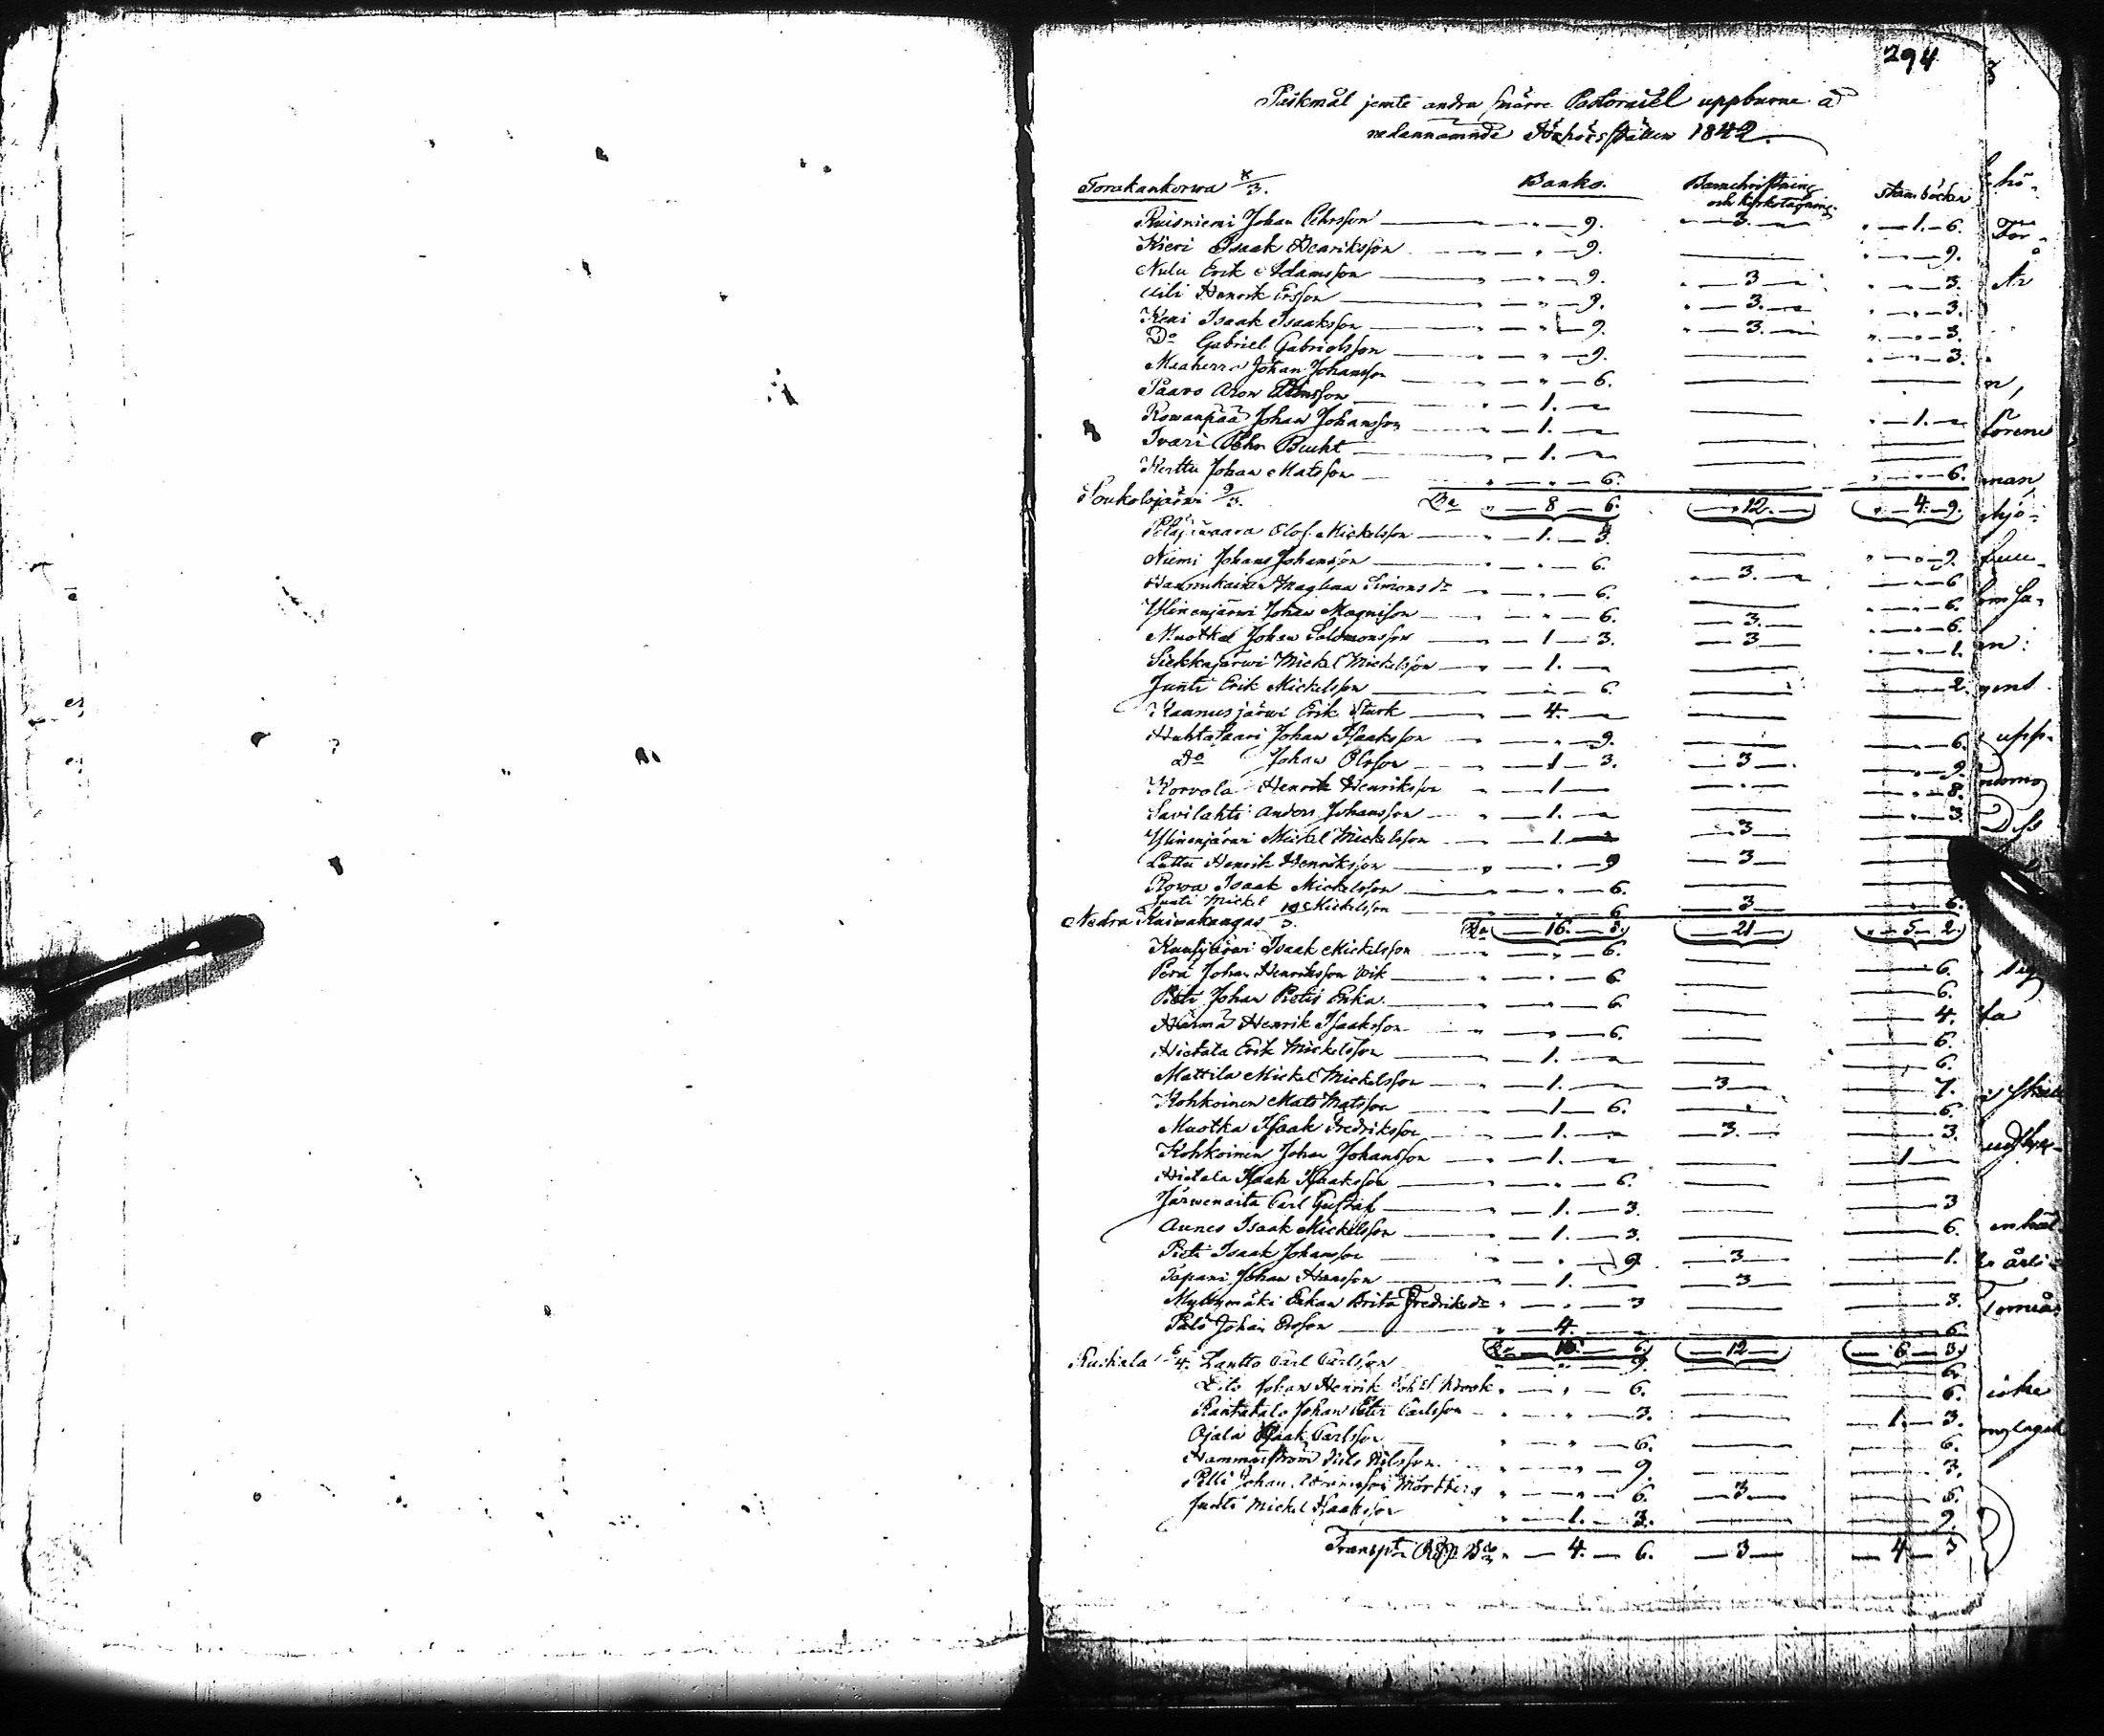 294
Påskmål jemte andra smärre Pastoralel uppburne å
nedannämnde Förhörsställen 1842.
Torakankorwa 8/3. Banko. Barnchristning och kyrkotagning. Stambäcken
Ruisniemi Johan Pehrsson — " — " — 9. " — 3. — " — 1. — 6.
Kieri Isaak Henriksson — " — " — 9. — " — " — 9.
Nulu Erik Adamsson — " — " — 9. " — 3 — " — " — 3.
Uili Henrik Ersson — " — " — 9. " — 3. — " — " — 3.
Keni Isaak Isaaksson — " — " — 9. " — 3. — " — " — 3.
Do Gabriel Gabrielsson — " — " — 9. — " — " — 3.
Maaherra Johan Johansson — " — " — 6. — —
Paavo Aron — " — 1. — —
Rowanpää Johan Johansson — " — 1. — — " — 1. —
Ivari Pehr Bucht — " — 1. — —
Kerttu Johan Matsson — " — " — 6. — " — " — 6.
Soukolojärwi 9/3. Bco " — 8 — 6. — " 12. — " — 4. — 9.
Petäjävaara Olof Mickelsson — " — 1. — 3. — " — " — 9.
Niemi Johan Johansson — " — " — 6. — 3. — " — " — 6
Hannukainen Maglena Simonsdr — " — " — 6. — " — " — 6.
Ylinenjärwi Johan Magnisson — " — " — 6. — 3. — " — " — 6.
Muotka Johan Salomonsson — " — 1 — 3. — 3 — " — " — 1.
Siekkajärwi Mickel Mickelsson — " — 1. — —
Junti Erik Mickelsson — " — 6. — — 2.
Kaanusjärwi Erik Stark — 4. — —
Huhtasaari Johan Isaaksson — " — " — 9. — — " — 6.
Do Johan Olsson — " — 1 — 3. — 3 — — " — 9.
Korvola Henrik Henriksson — " — 1 — — " — — " — 8.
Savilahti Anders Johansson — " — 1. — — — " — 3.
Ylinenjärwi Mickel Mickelsson — " — 1. — — 3 —
Lattu Henrik Henriksson — " — " — 9 — 3 —
Rowa Isaak Mickelsson — " — " — 6. —
Junti Mickel Mickelsson — " — " — 6 — 3 — " — 6.
Nedra Kuiwakangas 10/3. Bco — 16. — 21 — " — 5 — 2.
Isaak Mickelsson — " — " — 6. — — 6.
Perä Johan Henriksson Wik — " — " — 6 — — 6.
Pieti Johan Pietis Enka — " — " — 6. — — 4.
Härmä Henrik Isaaksson — " — " — 6. — — 6.
Hietala Erik Mickelsson — " — 1. — — — 6.
Mattila Mickel Mickelsson — " — 1. — — 3 — — 7.
Kohkoinen Mats Matsson — " — 1 — 6. — — 6.
Muotka Isaak Fredriksson — " — 1. — — 3. — — 3.
Kohkoinen Johan Johansson — " — 1. — — — 1 —
Hietala Isaak Isaaksson — " — " — 6. — —
Järwenaita Carl Gustaf — " — 1. — 3. — — 3
Aunes Isaak Mickelsson — " — 1. — 3. — — 6.
Pieti Isaak Johansson — " — " — 9 — 3 — — 1.
Tapani Johan Hansson — " — 1. — — 3 —
Myllymäki Enkan Brita Fredriksdr " — " — 3 — — 3.
Palo Johan Ersson — " — 4. — — 6
Ruskola 6/4. Lantto Carl Carlsson — " — " — 9. — — 6.
Bco — 6. — 12 — 6 — 3.
Johan Henrik — " — " — 6. — — 6.
Rantatalo Johan Peter Carlsson — " — " — 3. — — 1. — 3.
Ojala Isaak Carlsson — " — " — 6. — — 6.
Hammarström Nils Nilsson — " — " — 9. — — 3.
Pelli Johan Mörtberg " — " — 6. — 3 — — 6.
Junti Mickel Isaaksson — " — 1. — 3. — — 9.
Transpt Rdr Bco " — 4. — 6. — 3 — — 4 — 3